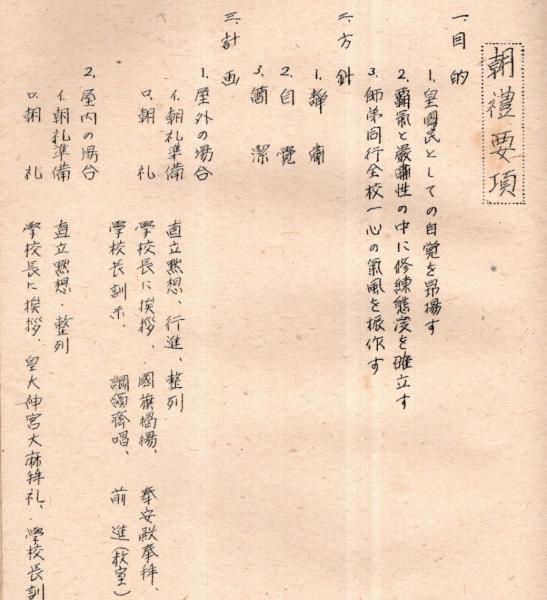 朝禮要項
一、目的
1. 皇國民としての自覚を昂揚す
2. 覇氣と嚴肅性の中に修練態度を確立す
3. 師弟同行全校一心の氣風を振作す
二、方針
1. 靜肅
2. 自覚
3. 簡潔
三、計画
1. 屋外の場合
イ. 朝礼準備 直立黙想、行進、整列
ロ. 朝礼 學校長に挨拶、國旗掲揚、奉安殿奉拜、
學校長訓示、綱領齊唱、前進(教室)
2. 屋内の場合
イ. 朝礼準備 直立黙想、整列
ロ. 朝礼 學校長に挨拶、皇大神宮大麻拜礼、學校長訓